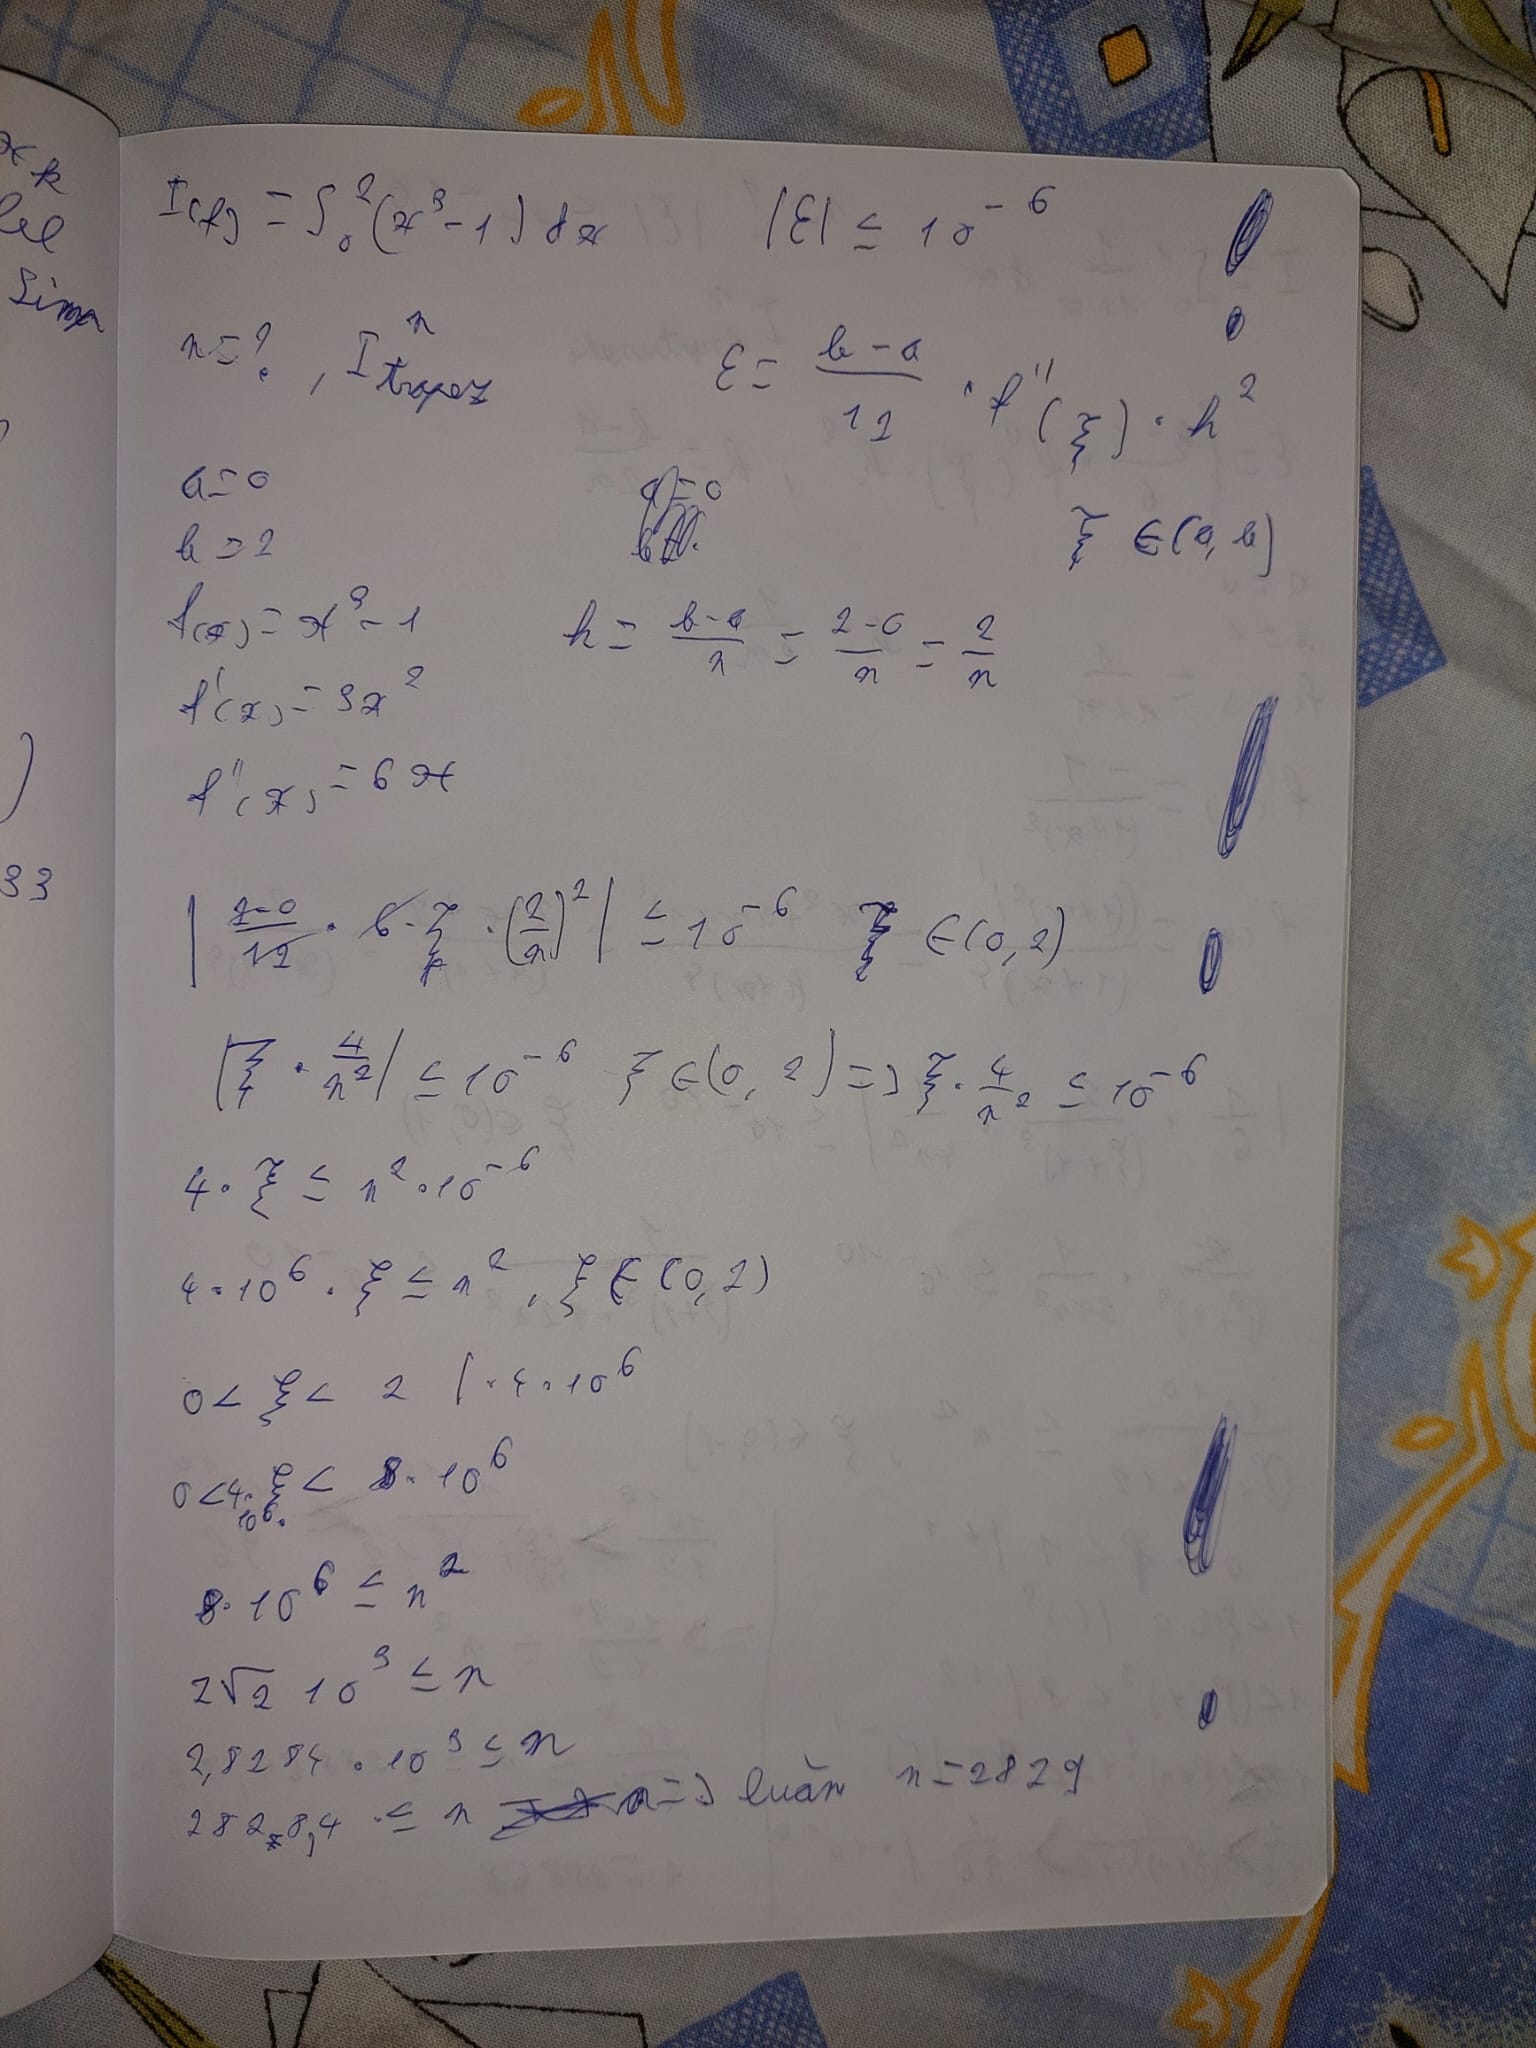 x k
Sim
)
33
I(f) = ∫₀² (x³-1) dx |ε| ≤ 10⁻⁶
n=? , I ⁿ trapez ε = (b-a)/12 · f''(ξ) · h²
a=0 a=0
b=2 ξ ∈(a, b)
f(x) = x³-1 h = (b-a)/n = (2-0)/n = 2/n
f'(x) = 3x²
f''(x) = 6x
| (2-0)/12 · 6·ξ · (2/n)² | ≤ 10⁻⁶ ξ ∈(0,2)
|ξ · 4/n²| ≤ 10⁻⁶ ξ ∈(0, 2) => ξ · 4/n² ≤ 10⁻⁶
4·ξ ≤ n²·10⁻⁶
4·10⁶·ξ ≤ n² , ξ ∈ (0,2)
0< ξ < 2 |·4·10⁶
0<4·10⁶·ξ < 8·10⁶
8·10⁶ ≤ n²
2√2 10³ ≤ n
2,8284·10³ ≤ n
2828,4 ≤ n => luăm n=2829